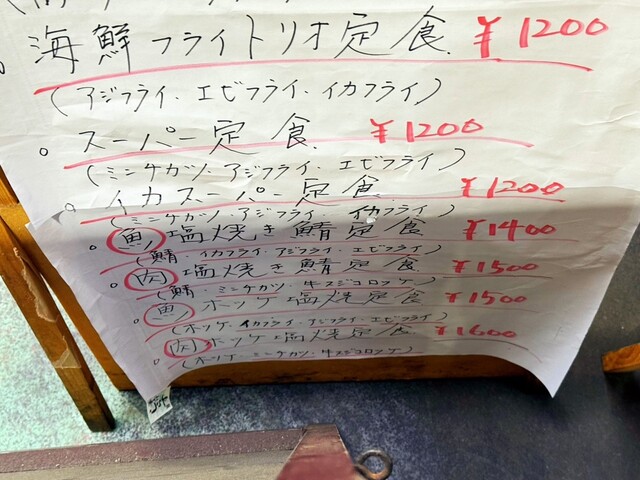 海鮮フライトリオ定食 ¥1200
(アジフライ・エビフライ・イカフライ)
。スーパー定食 ¥1200
(ミンチカツ・アジフライ・エビフライ)
。イカスーパー定食 ¥1200
(ミンチカツ・アジフライ・イカフライ)
。魚塩焼き鯖定食 ¥1400
(鯖・イカフライ・アジフライ・エビフライ)
。肉塩焼き鯖定食 ¥1500
(鯖・ミンチカツ・牛スジコロッケ)
。魚ホッケ塩焼定食 ¥1500
(ホッケ・イカフライ・アジフライ・エビフライ)
。肉ホッケ塩焼定食 ¥1600
(ホッケ・ミンチカツ・牛スジコロッケ)